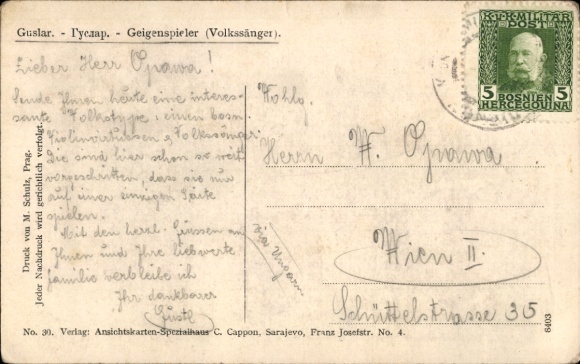 Guslar. - Гуслар. - Geigenspieler (Volkssänger).
K.u.K. MILITÄR
POST
5 5
BOSNIEN
HERCEGOVINA
Lieber Herr Opawa!
Sende Ihnen heute eine interes-
sante Volkstype: einen bosn.
Violinvirtuosen u. Volkssänger.
Die sind hier schon so weit
vorgeschritten, dass sie nur
auf einer einzigen Saite
spielen.
Mit den herzl. Grüssen an
Ihnen und Ihre liebwerte
Familie verbleibe ich
Ihr dankbarer
Gustl
Wohlg.
Herrn W. Opawa
Wien II.
Schüttelstrasse 35
via Ungarn
Druck von M. Schulz, Prag.
Jeder Nachdruck wird gerichtlich verfolgt.
No. 30. Verlag: Ansichtskarten-Spezialhaus C. Cappon, Sarajevo, Franz Josefstr. No. 4.
6403